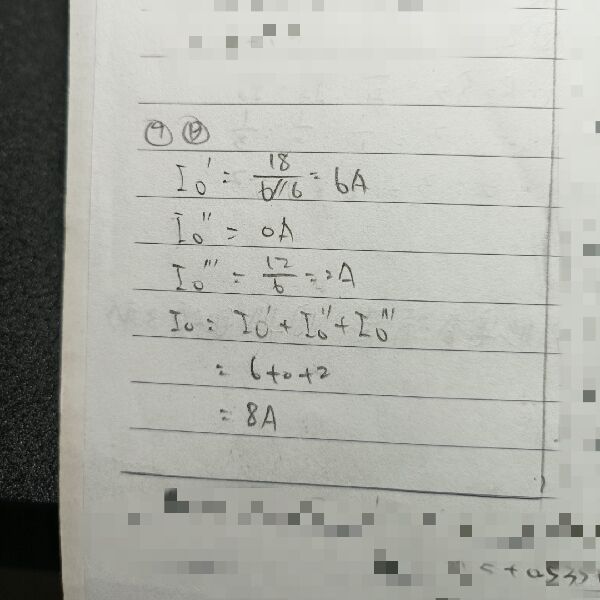 ⑨ Ⓑ
I₀' = 18/(6//6) = 6A
I₀'' = 0A
I₀''' = 12/6 = 2A
I₀ = I₀' + I₀'' + I₀'''
= 6+0+2
= 8A